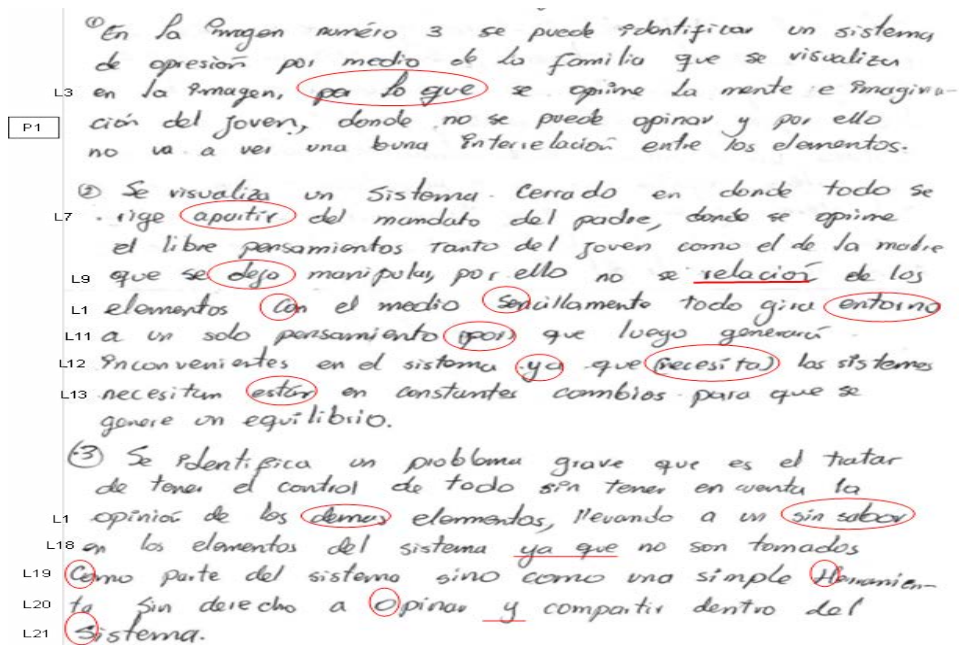 ① En la imagen numéro 3 se puede identificar un sistema
de opresión por medio de la familia que se visualiza
L3 en la imagen, por lo que se oprime la mente e imagina-
P1 ción del joven, donde no se puede opinar y por ello
no va a ver una buna interrelación entre los elementos.
② Se visualiza un sistema cerrado en donde todo se
L7 rige apartir del mandato del padre, donde se oprime
el libre pensamientos tanto del joven como el de la madre
L9 que se dejo manipular, por ello no se relación de los
L1 elementos con el medio sencillamente todo gira entorno
L11 a un solo pensamiento (por) que luego generará
L12 inconvenientes en el sistema ya que (necesita) los sistemas
L13 necesitan estár en constantes cambios para que se
genere un equilibrio.
3 Se identifica un problema grave que es el tratar
de tener el control de todo sin tener en cuenta la
L1 opinión de los demas elementos, llevando a un sin sabor
L18 en los elementos del sistema ya que no son tomados
L19 Como parte del sistema sino como una simple Herramien-
L20 ta sin derecho a Opinar y compartir dentro del
L21 Sistema.